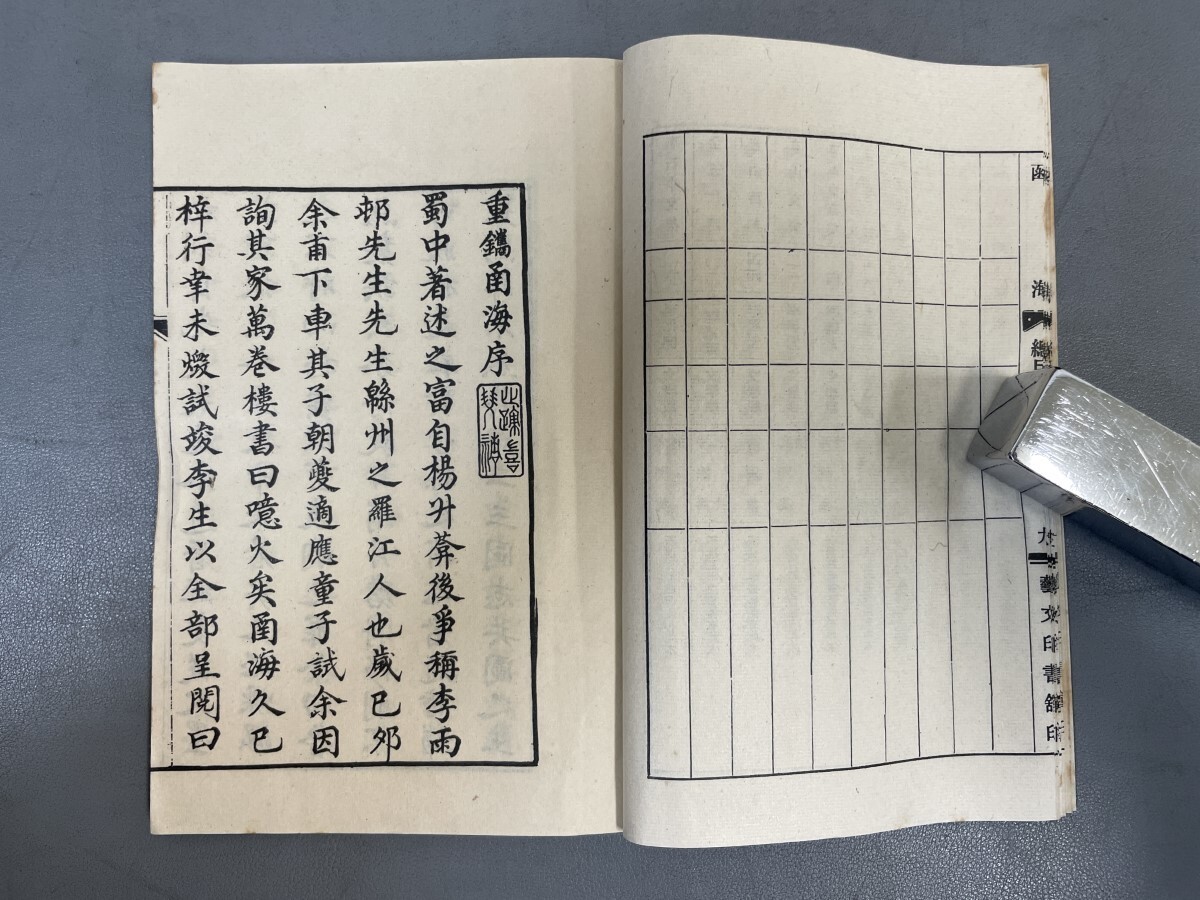 重鐫函海序
蜀中著述之富自楊升菴後爭稱李雨
邨先生先生緜州之羅江人也歲己夘
余甫下車其子朝夔適應童子試余因
詢其家萬卷樓書曰噫火矣函海久已
梓行幸未燬試竣李生以全部呈閱曰
函海
總目
九
藝文印書館印